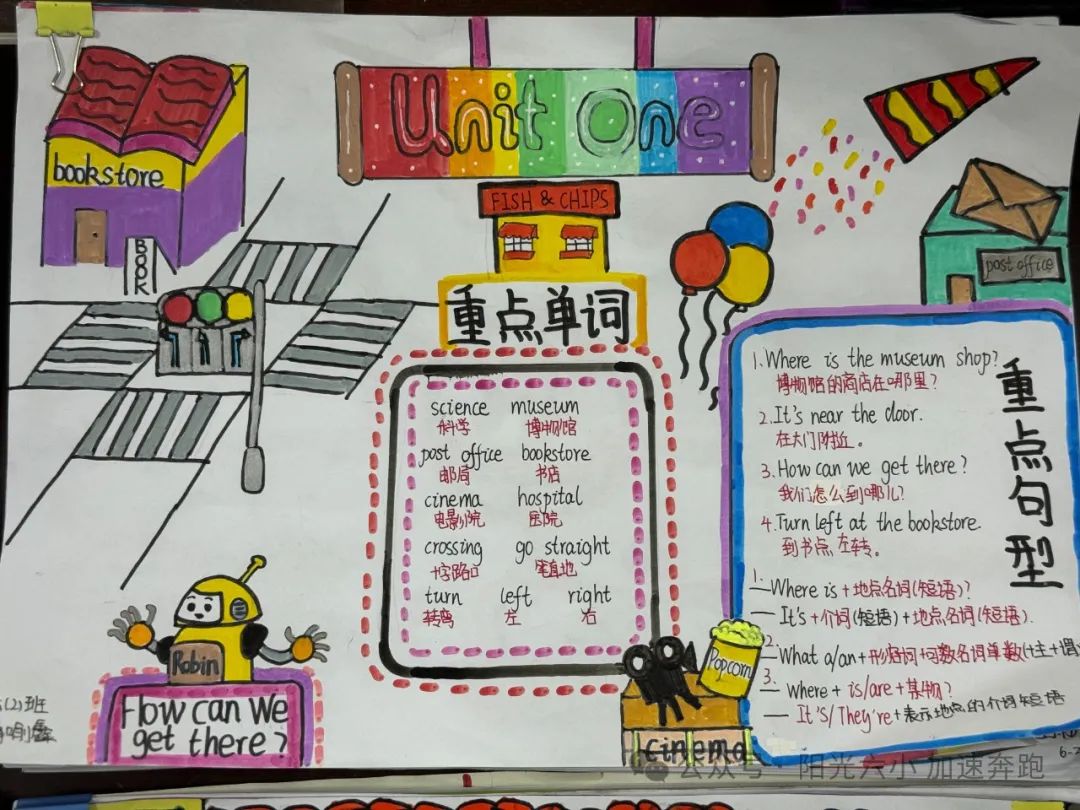 Unit One
bookstore
BOOK
FISH & CHIPS
post office
重点单词
science museum
科学 博物馆
post office bookstore
邮局 书店
cinema hospital
电影院 医院
crossing go straight
十字路口 笔直地
turn left right
转弯 左 右
重点句型
1.Where is the museum shop?
博物馆的商店在哪里?
2.It's near the door.
在大门附近。
3.How can we get there?
我们怎么到那儿?
4.Turn left at the bookstore.
到书点左转。
1.
—Where is +地点名词(短语)?
— It's +介词(短语)+地点名词(短语).
2.
What a/an+形容词+可数名词单数(+主+谓
3.
— Where + is/are +某物?
— It's/They're+表示地点的介词短语
Robin
How can We
get there?
Popcorn
cinema
(2)班
公众号·阳光六小 加速奔跑